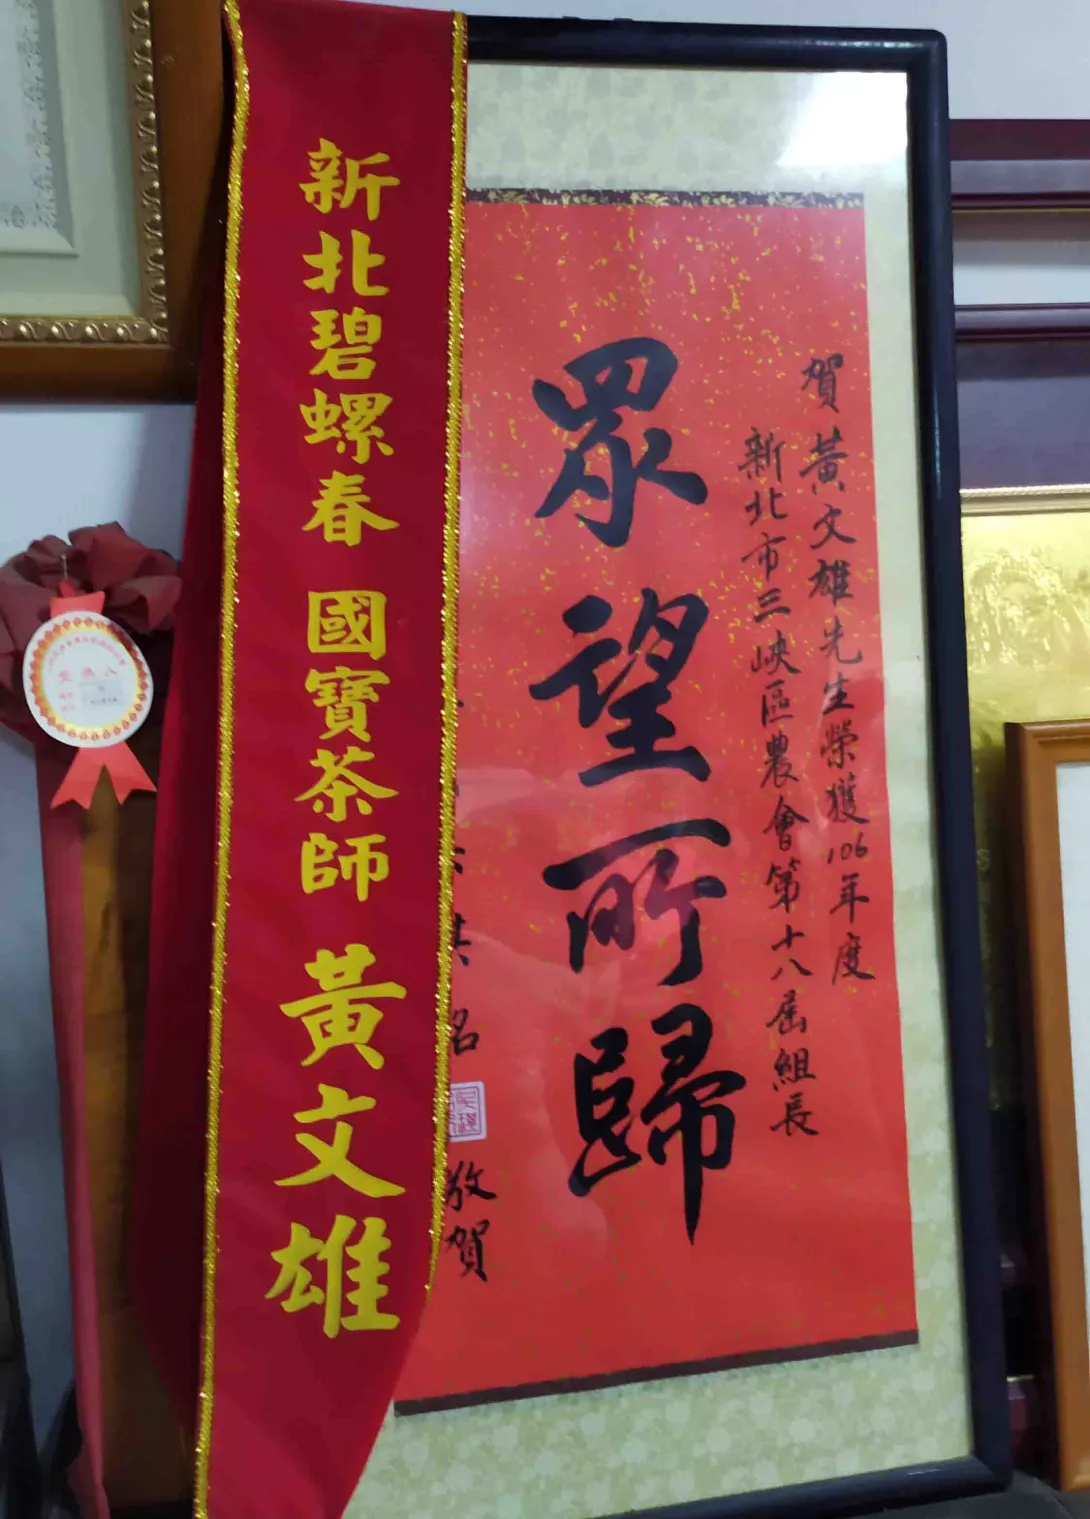 新北碧螺春 國寶茶師 黃文雄
賀黃文雄先生榮獲106年度
新北市三峽區農會第十八屆組長
眾望所歸
敬賀